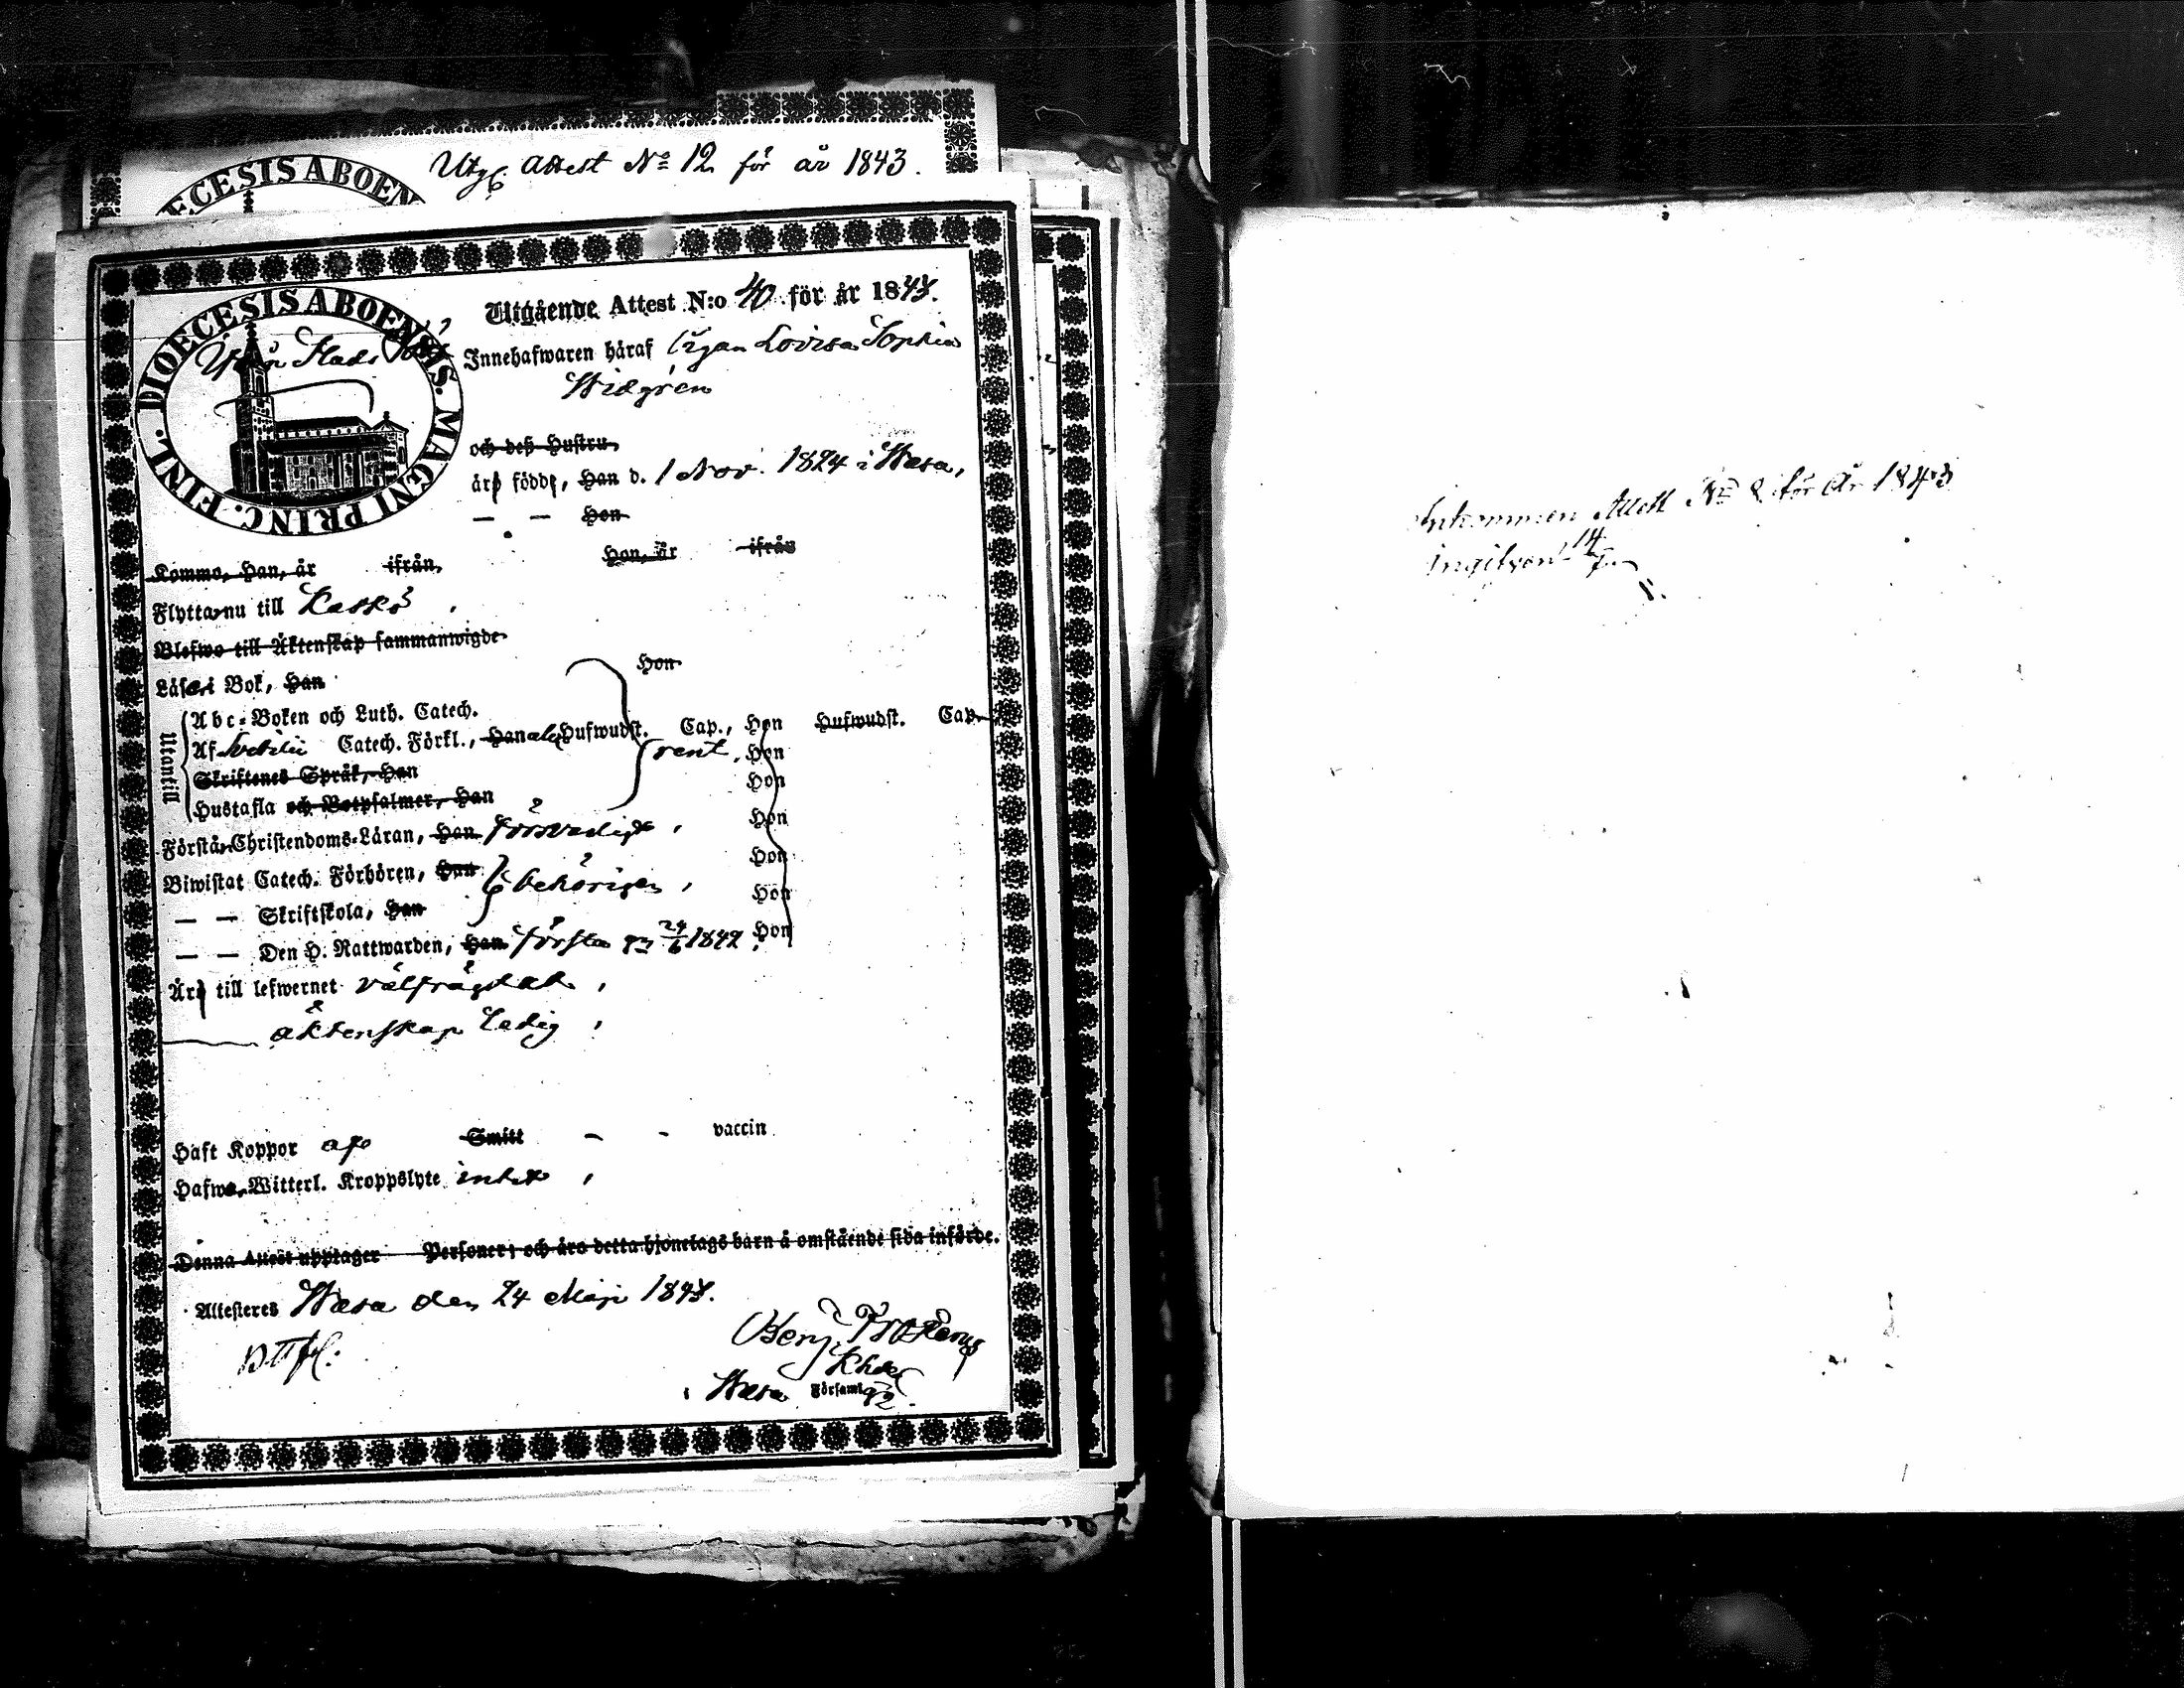 Utg. Attest No 12 för år 1843.
DIOECESIS ABOEN
DIOECESIS ABOENSIS. MAGNI PRINC. FINL.
Utgående Attest N:o 40 för år 1843.
Innehafwaren häraf Pigan Lovisa Sophia
Widgrén
och deß Hustru
äro födde, Han d. 1 Nov. 1824 i Wasa,
— — Hon
Kommo, Han, år ifrån, Hon, år ifrån
Flytta nu till Kaskö,
Blefwo till Äktenskap sammanwigde
Läsa i Bok, Han Hon
Utantill
Abc-Boken och Luth. Catech.
Af Svebilii Catech. Förkl., Han Hufwudst. Cap., Hon Hufwudst. Cap.
rent, Hon
Skriftenes Språk, Han Hon
Hustafla och Botpsalmer, Han
Förstå Christendoms-Läran, Han försvarligt, Hon
Biwistat Catech. Förhören, Han behörigen, Hon
— — Skriftskola, Han Hon
— — Den H. Nattwarden, Han första gn 24/6 1842, Hon
Äro till lefwernet välfrägdad,
äktenskap ledig,
Haft Koppor Smitt - - vaccin
Hafwa Witterl. Kroppslyte intet,
Denna Attest upptager Personer; och äro detta hjonelags barn å omstående sida införde.
Attesteres Wasa den 24 Maji 1843.
Benj. Frosterus
Wasa Församl
Inkommen Attest No 8 för År 1843
ingifven 14/7